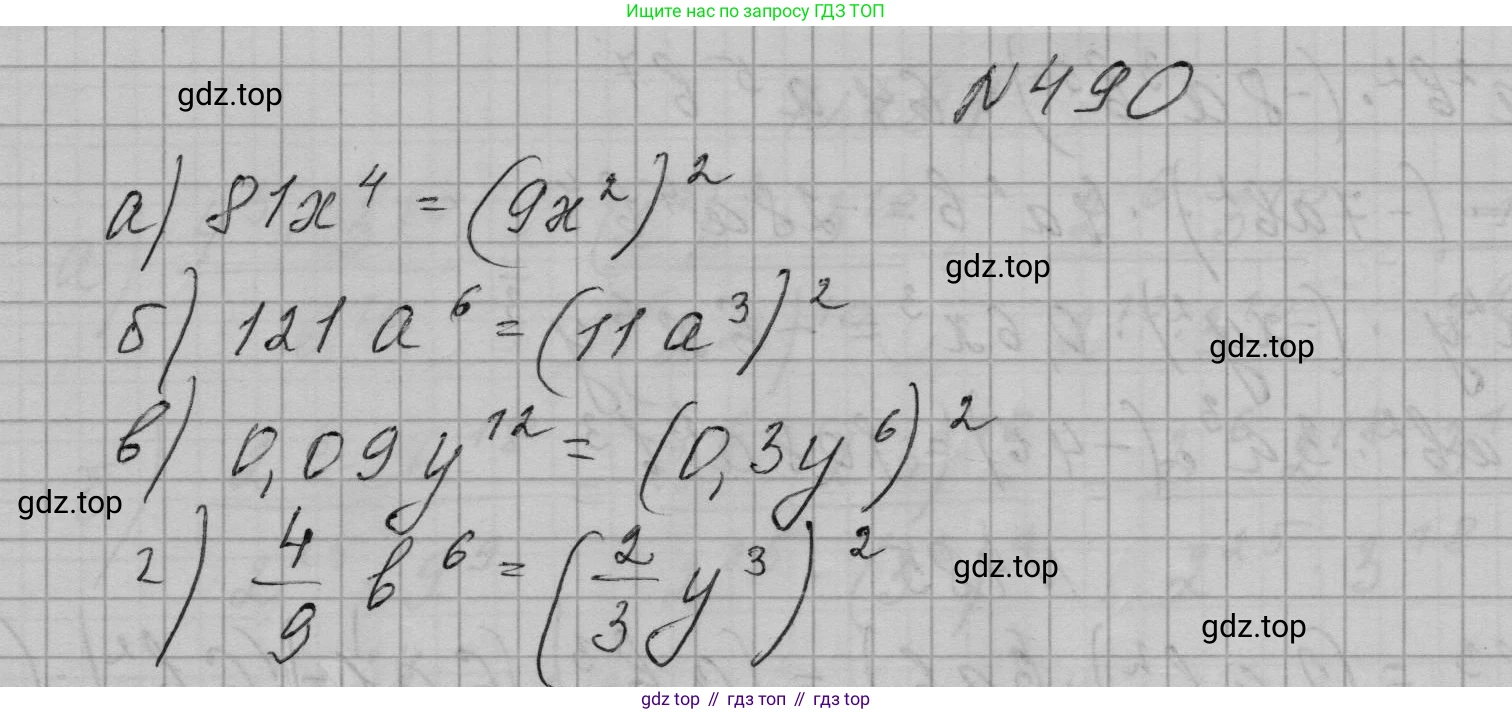 Ищите нас по запросу ГДЗ ТОП
gdz.top
N 490
а) 81x⁴ = (9x²)²
gdz.top
б) 121 a⁶ = (11 a³)²
gdz.top
в) 0,09 y¹² = (0,3y⁶)²
gdz.top
г) 4/9 в⁶ = (2/3 y³)²
gdz.top
gdz.top
gdz top // гдз топ // гдз top